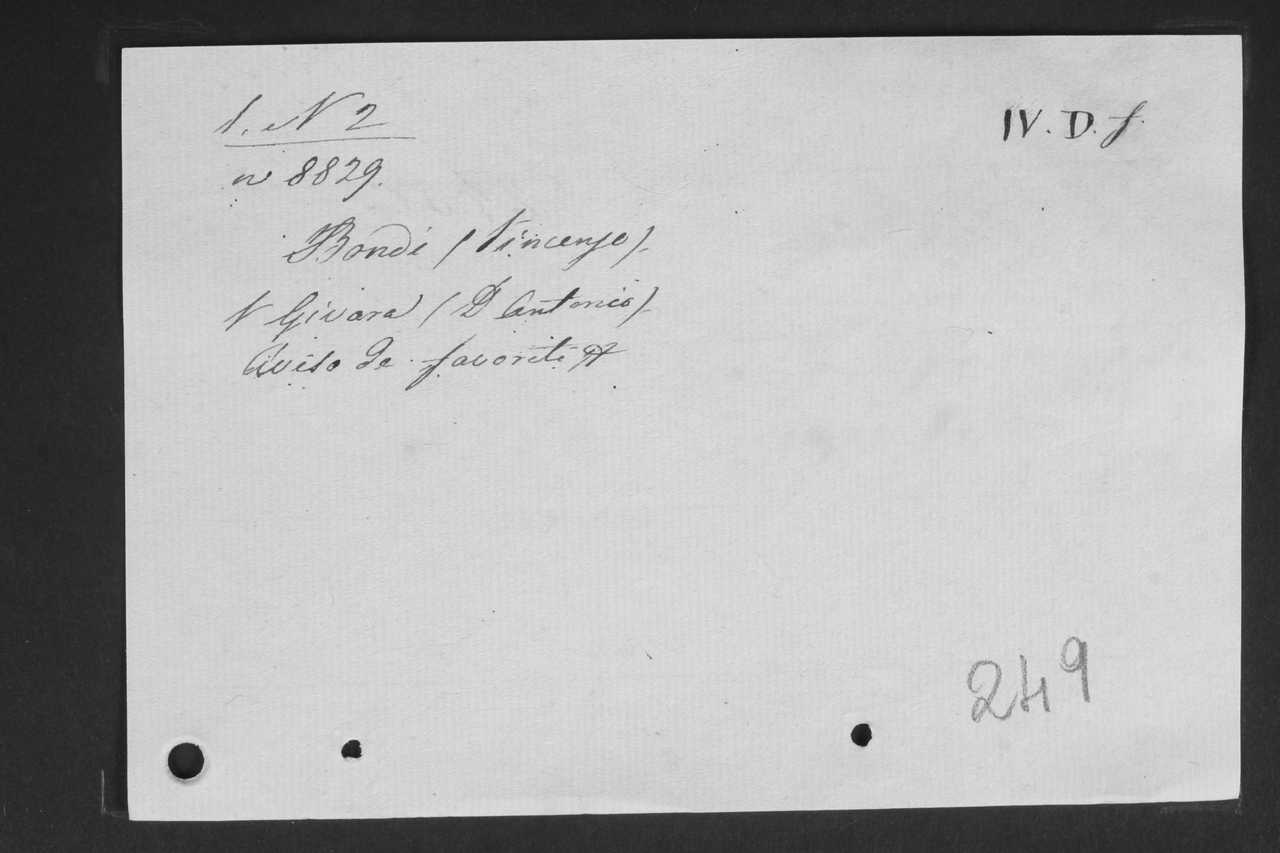 1. N 2
IV. D. f.
nº 8829.
Bondi (Vincenzo).
V Givara (D Antonio).
Aviso de favoriti
249